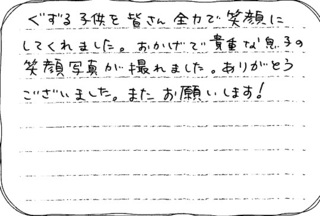 ぐずる子供を皆さん全力で笑顔に
してくれました。おかげで貴重な息子の
笑顔写真が撮れました。ありがとう
ございました。またお願いします!